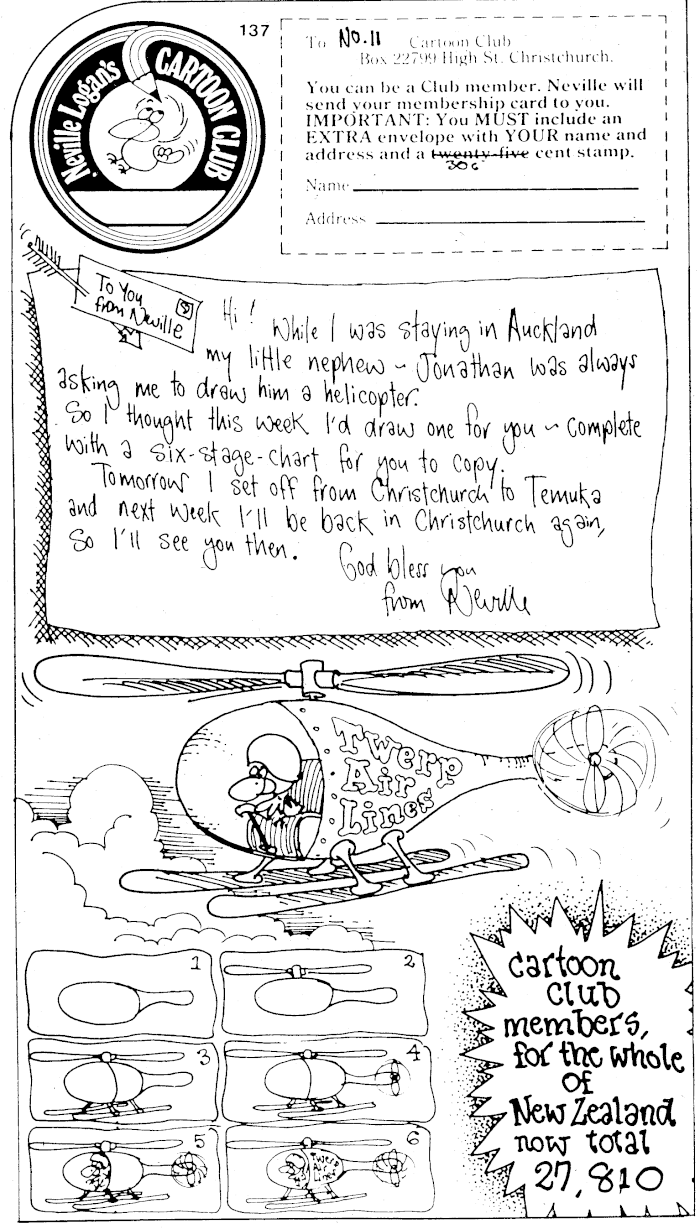 137
Neville Logan's CARTOON CLUB
To No.11 Cartoon Club
Box 22799 High St. Christchurch.
You can be a Club member. Neville will
send your membership card to you.
IMPORTANT: You MUST include an
EXTRA envelope with YOUR name and
address and a twenty-five cent stamp.
30c
Name
Address
To You
from Neville
Hi! While I was staying in Auckland
my little nephew ~ Jonathan was always
asking me to draw him a helicopter.
So I thought this week I'd draw one for you ~ complete
with a six-stage-chart for you to copy.
Tomorrow I set off from Christchurch to Temuka
and next week I'll be back in Christchurch again,
so I'll see you then.
God bless you
from Neville
Twerp
Air
Lines
1
2
3
4
5
6
Twerp
Air
Lines
cartoon
club
members,
for the whole
of
New Zealand
now total
27,810